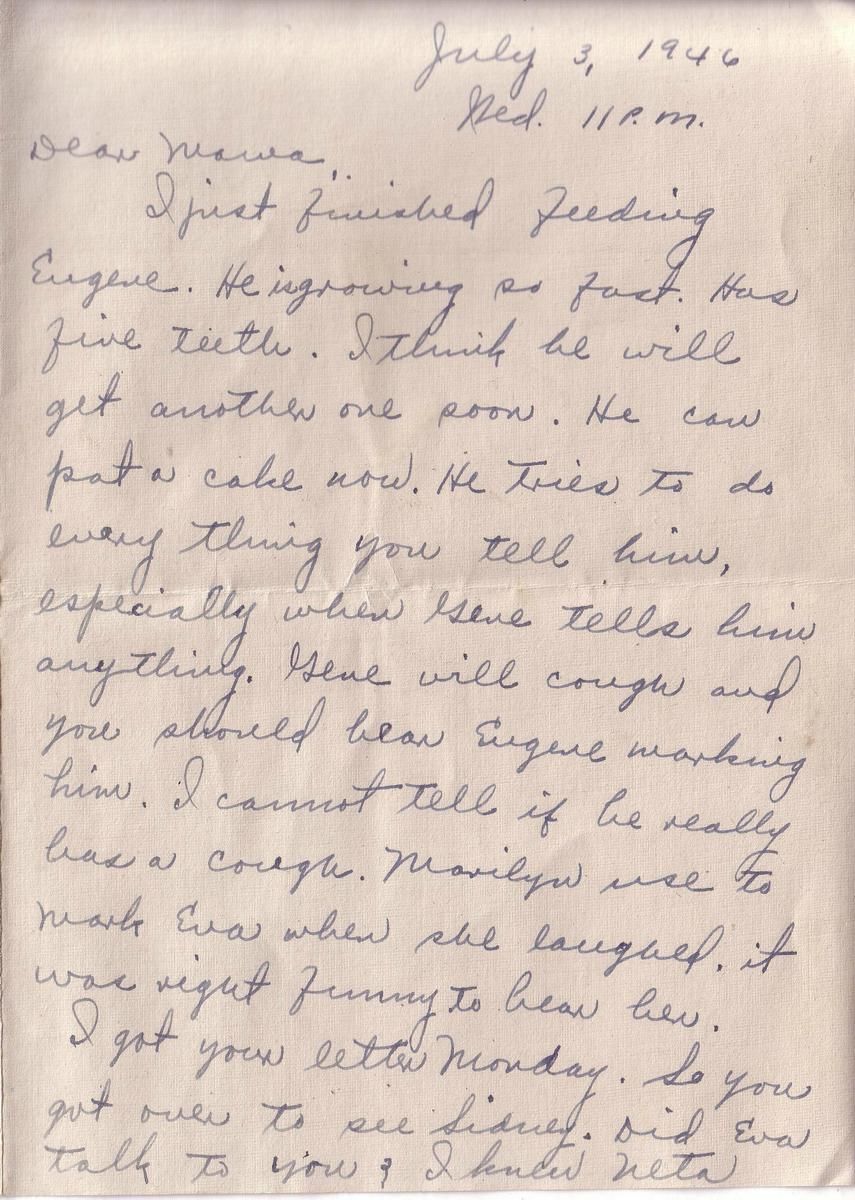 July 3, 1946
Wed. 11 P.M.
Dear Mama,
I just finished feeding
Eugene. He is growing so fast. Has
five teeth. I think he will
get another one soon. He can
pat a cake now. He tries to do
every thing you tell him,
especially when Gene tells him
anything. Gene will cough and
you should hear Eugene marking
him. I cannot tell if he really
has a cough. Marilyn use to
mark Eva when she laughed. it
was right funny to hear her.
I got your letter Monday. So you
got over to see Sidney. Did Eva
talk to you? I knew Neta